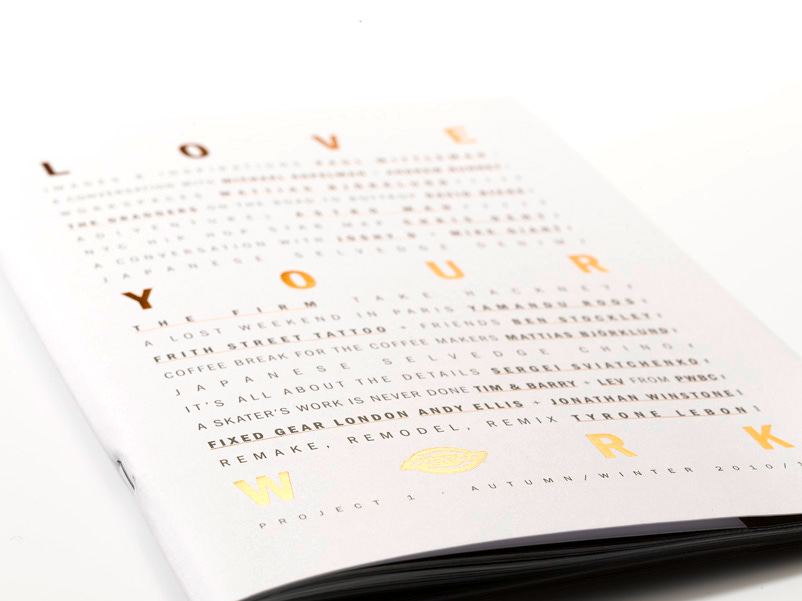 L O V E
IMAGES & INSPIRATIONS PAUL MITTLEMAN,
A CONVERSATION WITH MICHAEL KOPELMAN,
MATTIAS BJÖRKLUND,
ON THE ROAD TO
ADVENTURE!
NYC HIP HOP STAR MAP
A CONVERSATION WITH + MIKE GIANT,
JAPANESE SELVEDGE DENIM,
Y O U R
THE FIRM TAKE HACKNEY,
A LOST WEEKEND IN PARIS YAMANDU ROOS,
FRITH STREET TATTOO + FRIENDS BEN STOCKLEY,
COFFEE BREAK FOR THE COFFEE MAKERS MATTIAS BJÖRKLUND,
JAPANESE SELVEDGE CHINO,
IT'S ALL ABOUT THE DETAILS SERGEI SVIATCHENKO,
A SKATER'S WORK IS NEVER DONE TIM & BARRY + LEV FROM PWBC,
FIXED GEAR LONDON ANDY ELLIS + JONATHAN WINSTONE!
REMAKE, REMODEL, REMIX TYRONE LEBON!
W R K
PROJECT 1 · AUTUMN/WINTER 2010/1